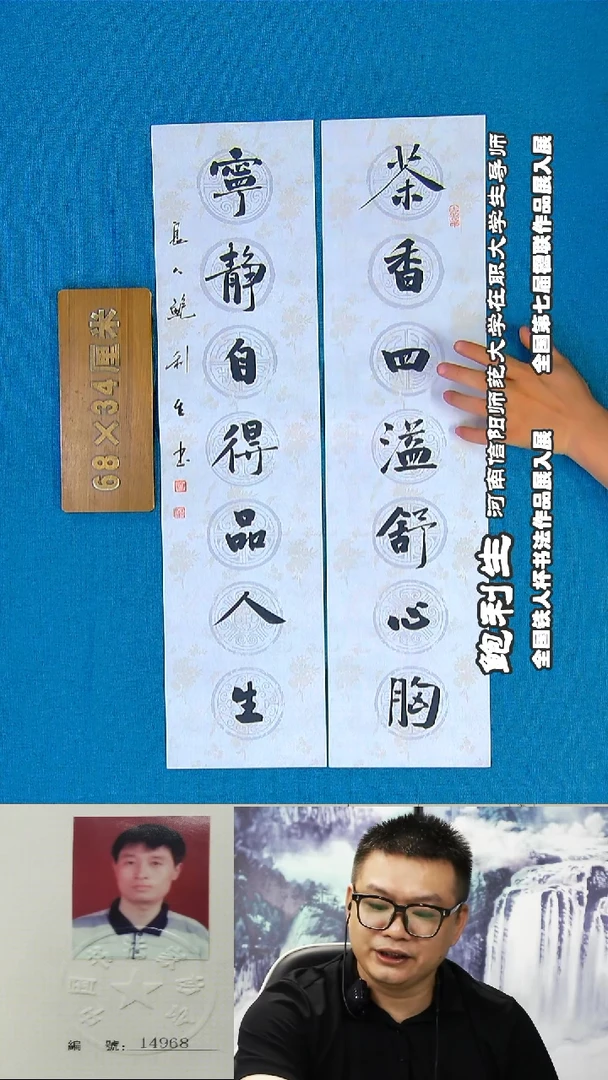 茶香四溢舒心胸
寧静自得品人生
鲍利生书
68×34厘米
鲍利生 河南信阳师范大学在职大学生导师
全国铁人杯书法作品展入展 全国第七届楹联作品展入展
編 號: 14968